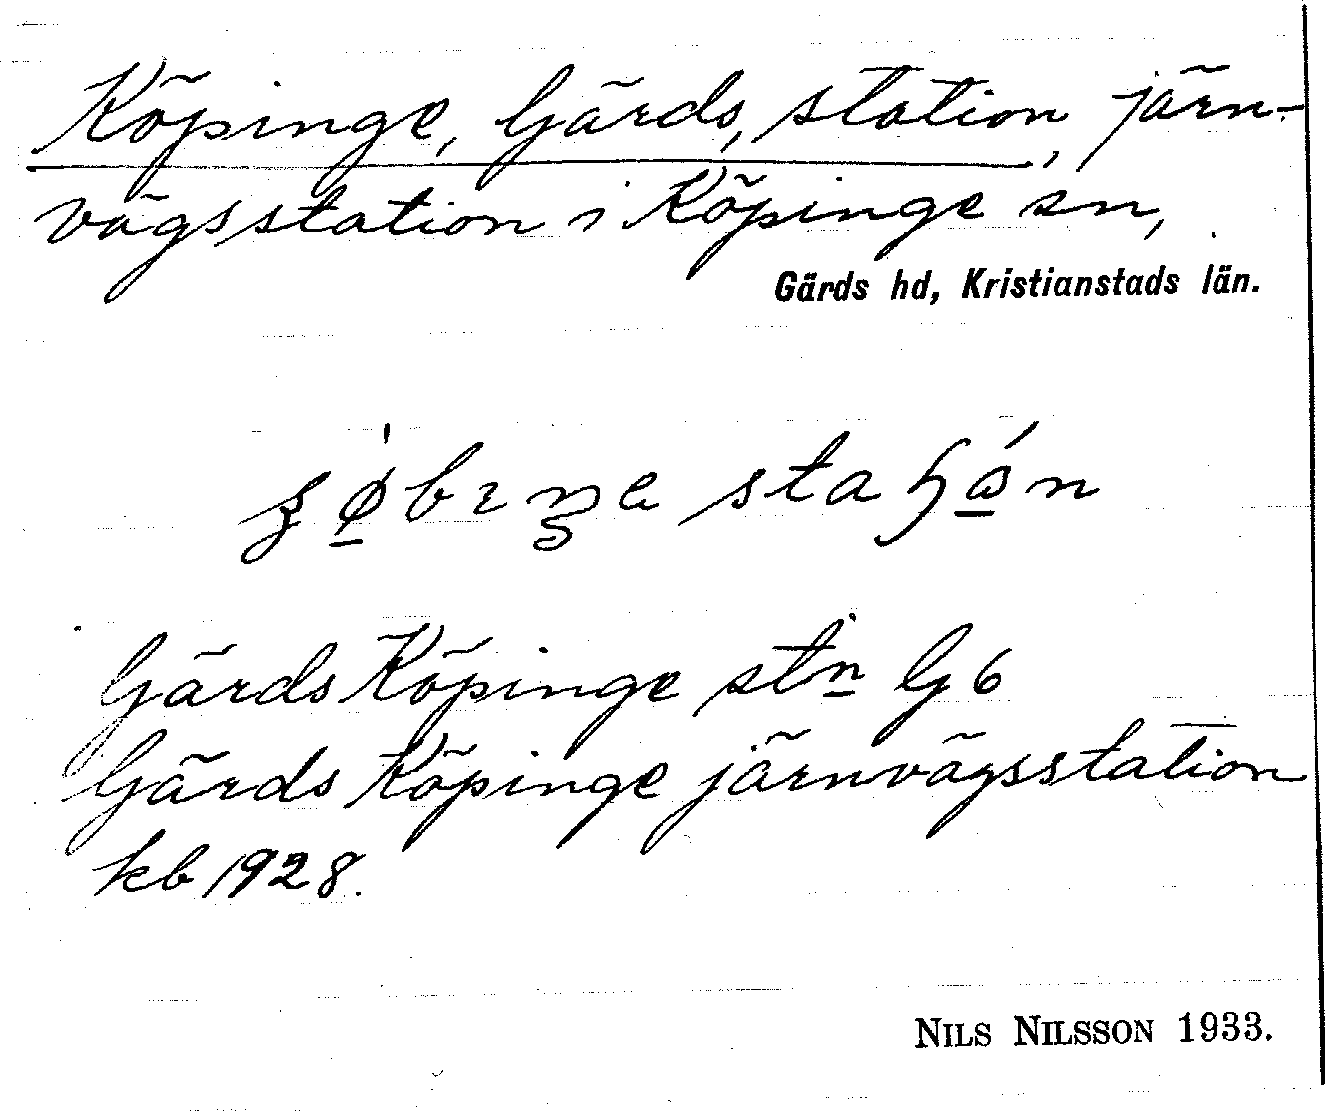 Köpinge, Gärds, station, järn-
vägsstation i Köpinge sn,
Gärds hd, Kristianstads län.
Gärds Köpinge stn G 6
Gärds Köpinge järnvägsstation
kb 1928.
NILS NILSSON 1933.